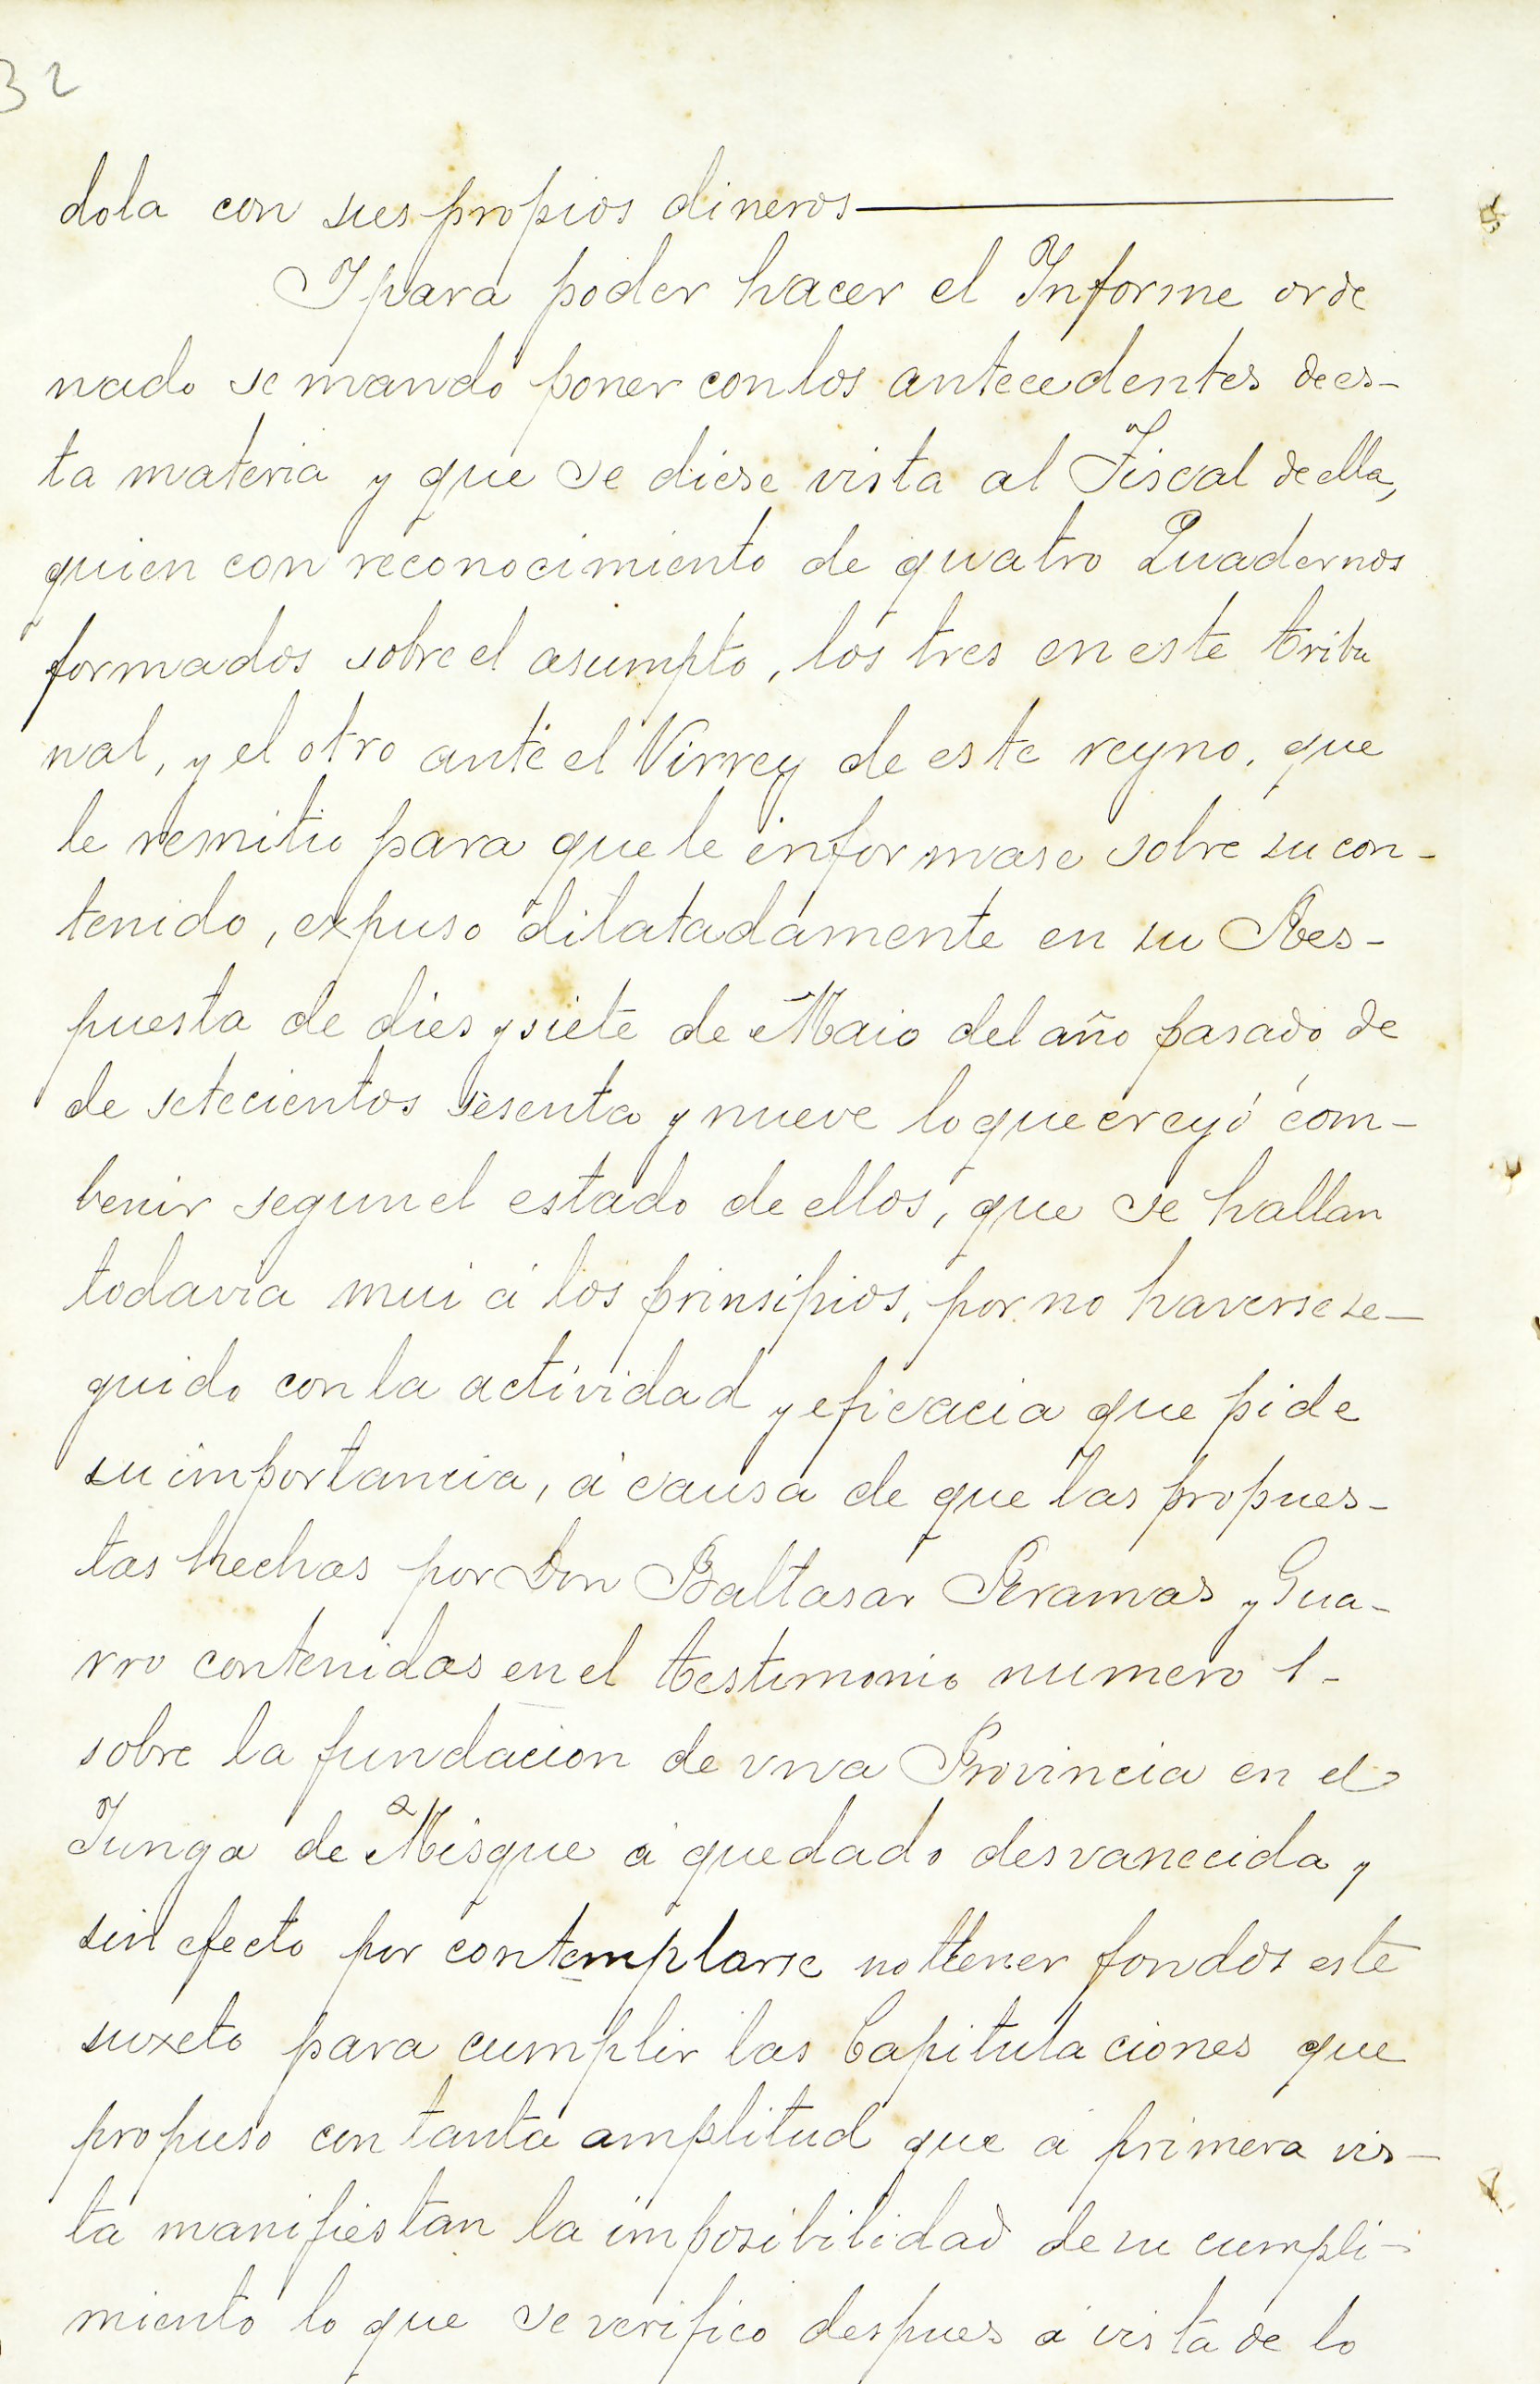 32
dola con sus propios dineros
I para poder hacer el Informe orde
nado se mandó poner con los antecedentes de es-
ta materia y que se diese vista al Fiscal de ella,
quien con reconocimiento de quatro Quadernos
formados sobre el asumpto, los tres en este tribu
nal, y el otro ante el Virrey de este reyno, que
le remitio para que le informase sobre su con-
tenido, expuso dilatadamente en su Res-
puesta de dies y siete de Maio del año pasado de
de setecientos sesenta y nueve lo que creyó com-
benir segun el estado de ellos, que se hallan
todavia mui á los prinsipios, por no haverse se-
guido con la actividad y eficacia que pide
su importancia, á causa de que las propues-
tas hechas por Don Baltasar Peramas y Gua-
rro contenidas en el testimonio numero 1-
sobre la fundacion de una Provincia en el
Iunga de Misque á quedado desvanecida y
sin efecto por contemplarse no ttener fondos este
suxeto para cumplir las Capitulaciones que
propuso con tanta amplitud que á primera vis-
ta manifiestan la imposibilidad de su cumpli-
miento lo que se verifico despues á vista de lo